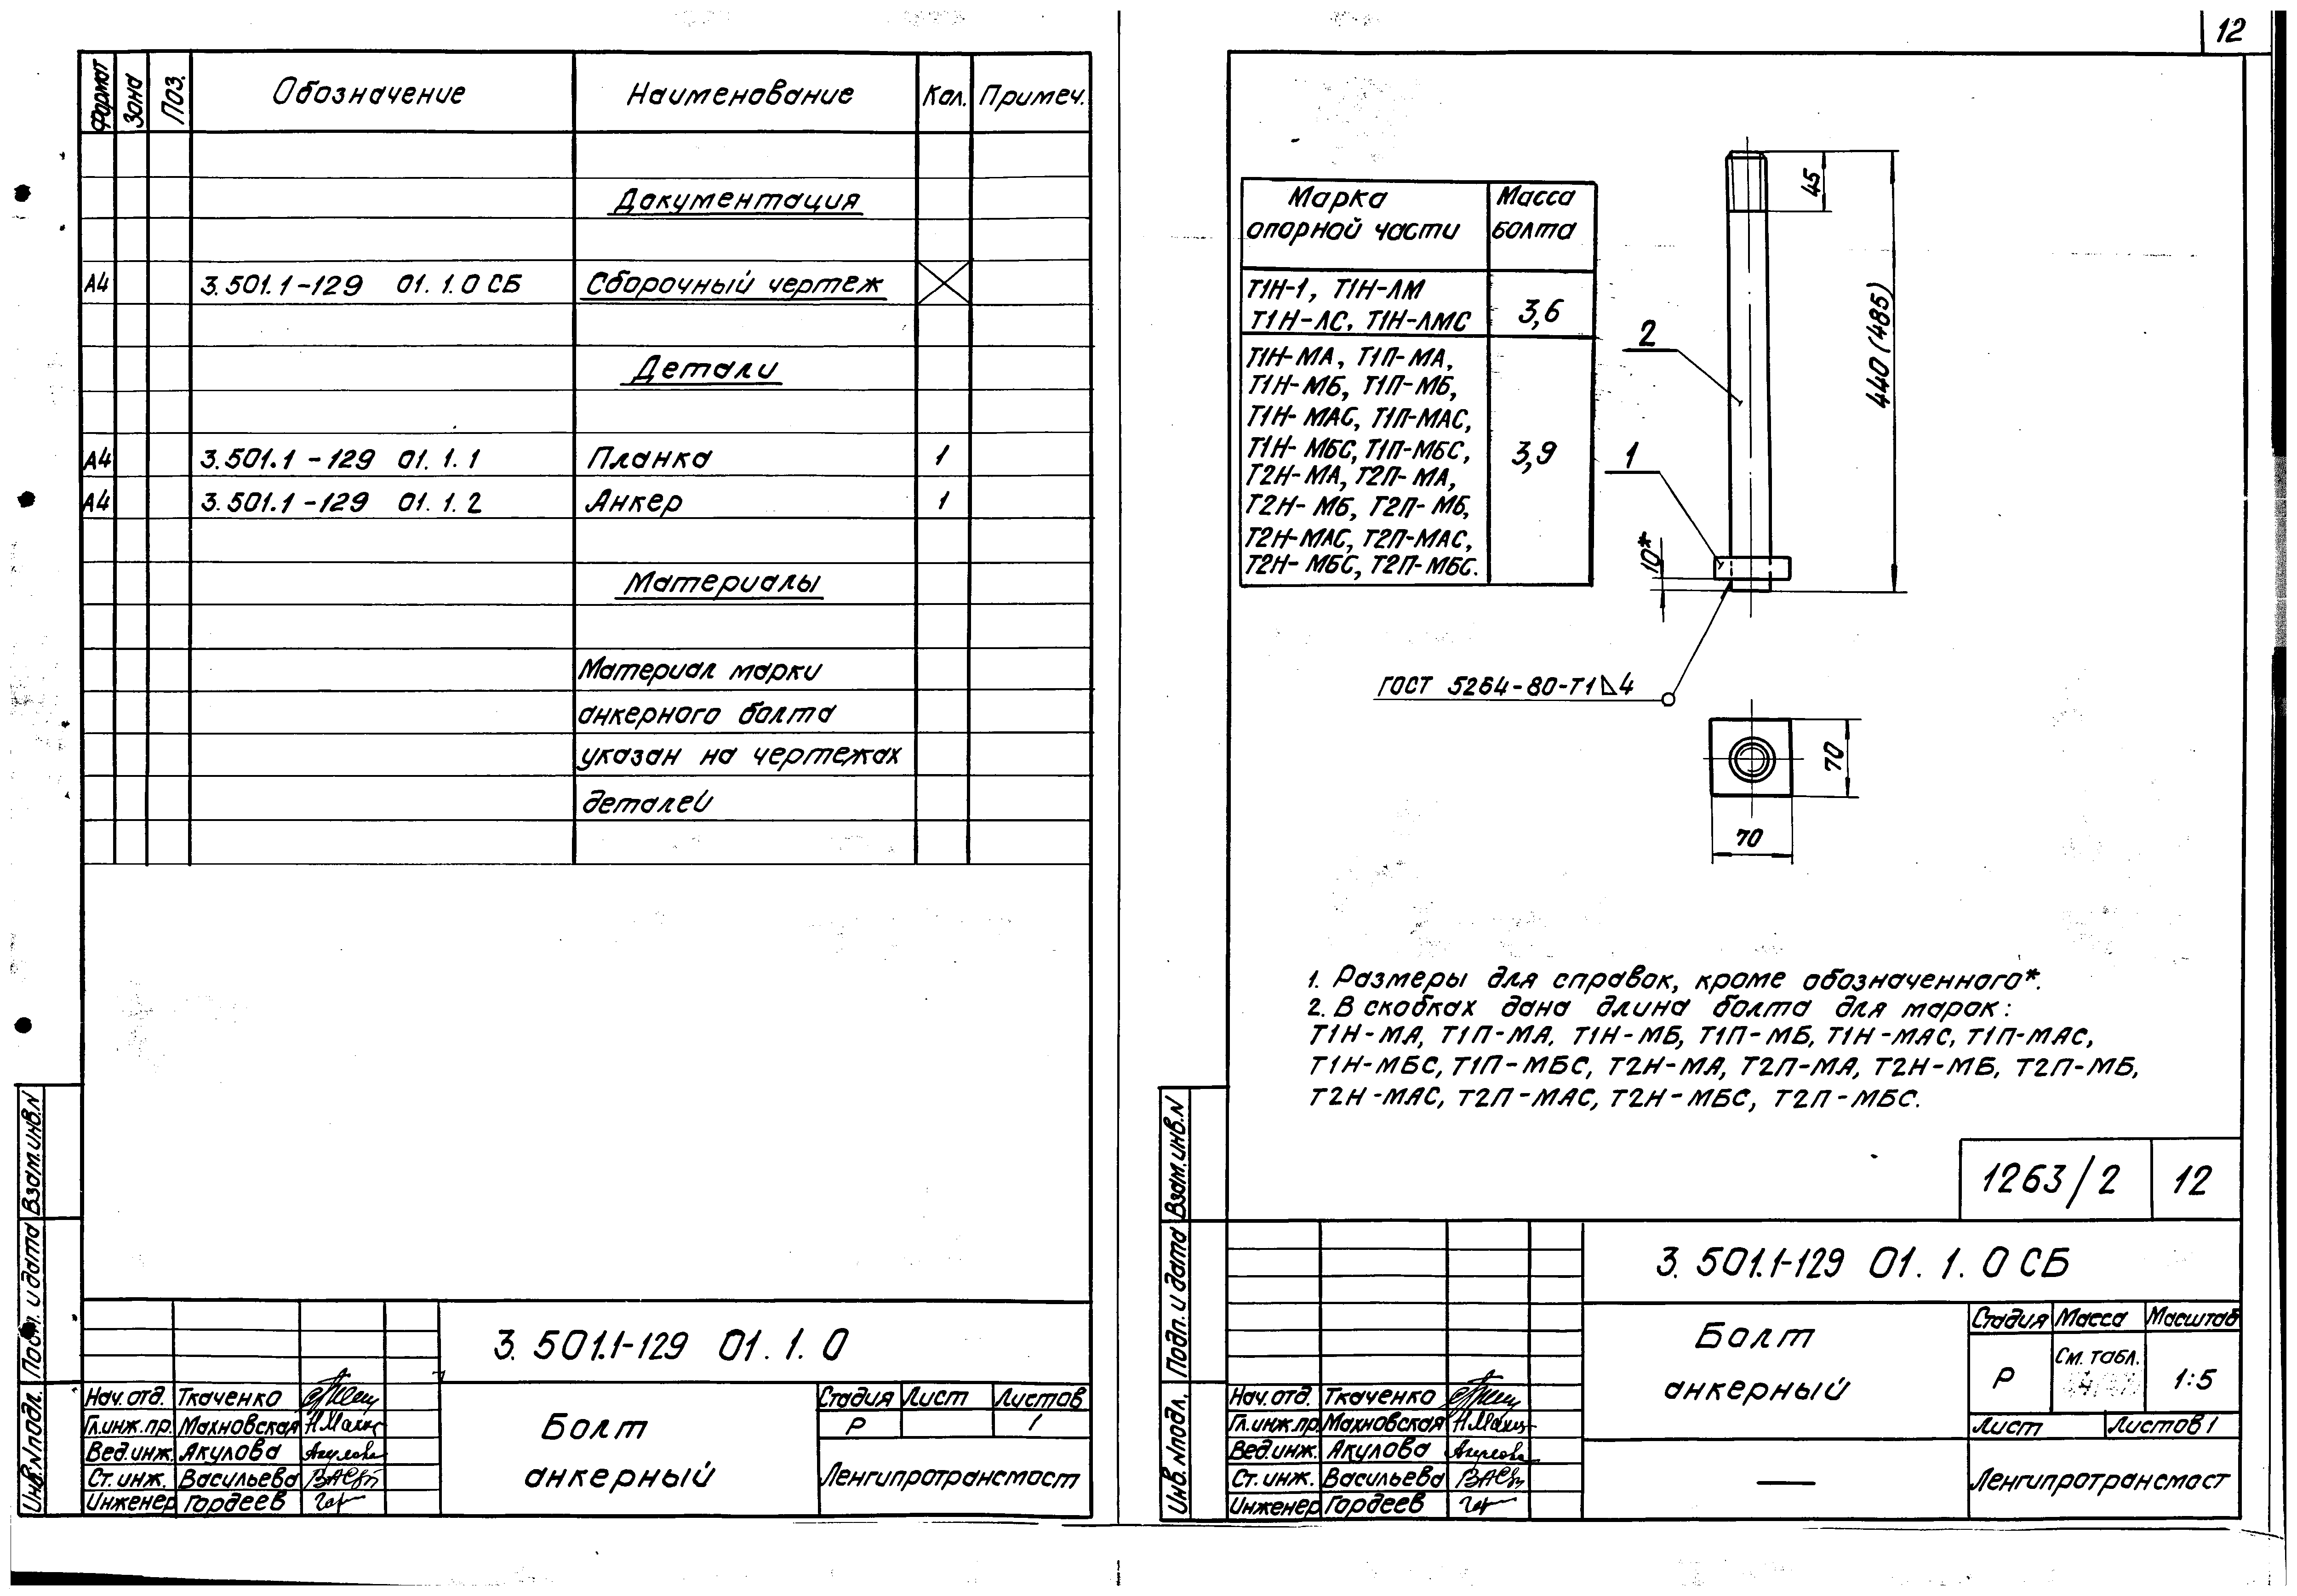 12
Формат Зона Поз. Обозначение Наименование Кол. Примеч.
Документация
А4 3.501.1-129 01.1.0 СБ Сборочный чертеж
Детали
А4 3.501.1-129 01.1.1 Планка 1
А4 3.501.1-129 01.1.2 Анкер 1
Материалы
Материал марки
анкерного болта
указан на чертежах
деталей
Взам.инв.N
Подп. и дата
Инв.Nподл.
3.501.1-129 01.1.0
Нач.отд. Ткаченко
Гл.инж.пр. Махновская
Вед.инж. Акулова
Ст.инж. Васильева
Инженер Гордеев
Болт
анкерный
Стадия Лист Листов
Р 1
Ленгипротрансмост
Марка
опорной части
Масса
болта
Т1Н-1, Т1Н-ЛМ
Т1Н-ЛС, Т1Н-ЛМС
3,6
Т1Н-МА, Т1П-МА,
Т1Н-МБ, Т1П-МБ,
Т1Н-МАС, Т1П-МАС,
Т1Н-МБС, Т1П-МБС,
Т2Н-МА, Т2П-МА,
Т2Н-МБ, Т2П-МБ,
Т2Н-МАС, Т2П-МАС,
Т2Н-МБС, Т2П-МБС.
3,9
45
440 (485)
2
1
10*
ГОСТ 5264-80-Т1⊿4
70
70
1. Размеры для справок, кроме обозначенного*.
2. В скобках дана длина болта для марок:
Т1Н-МА, Т1П-МА, Т1Н-МБ, Т1П-МБ, Т1Н-МАС, Т1П-МАС,
Т1Н-МБС, Т1П-МБС, Т2Н-МА, Т2П-МА, Т2Н-МБ, Т2П-МБ,
Т2Н-МАС, Т2П-МАС, Т2Н-МБС, Т2П-МБС.
1263/2 12
Взам.инв.N
Подп. и дата
Инв.Nподл.
3.501.1-129 01.1.0 СБ
Нач.отд. Ткаченко
Гл.инж.пр. Махновская
Вед.инж. Акулова
Ст.инж. Васильева
Инженер Гордеев
Болт
анкерный
Стадия Масса Масштаб
Р См. табл. 1:5
Лист Листов 1
Ленгипротрансмост